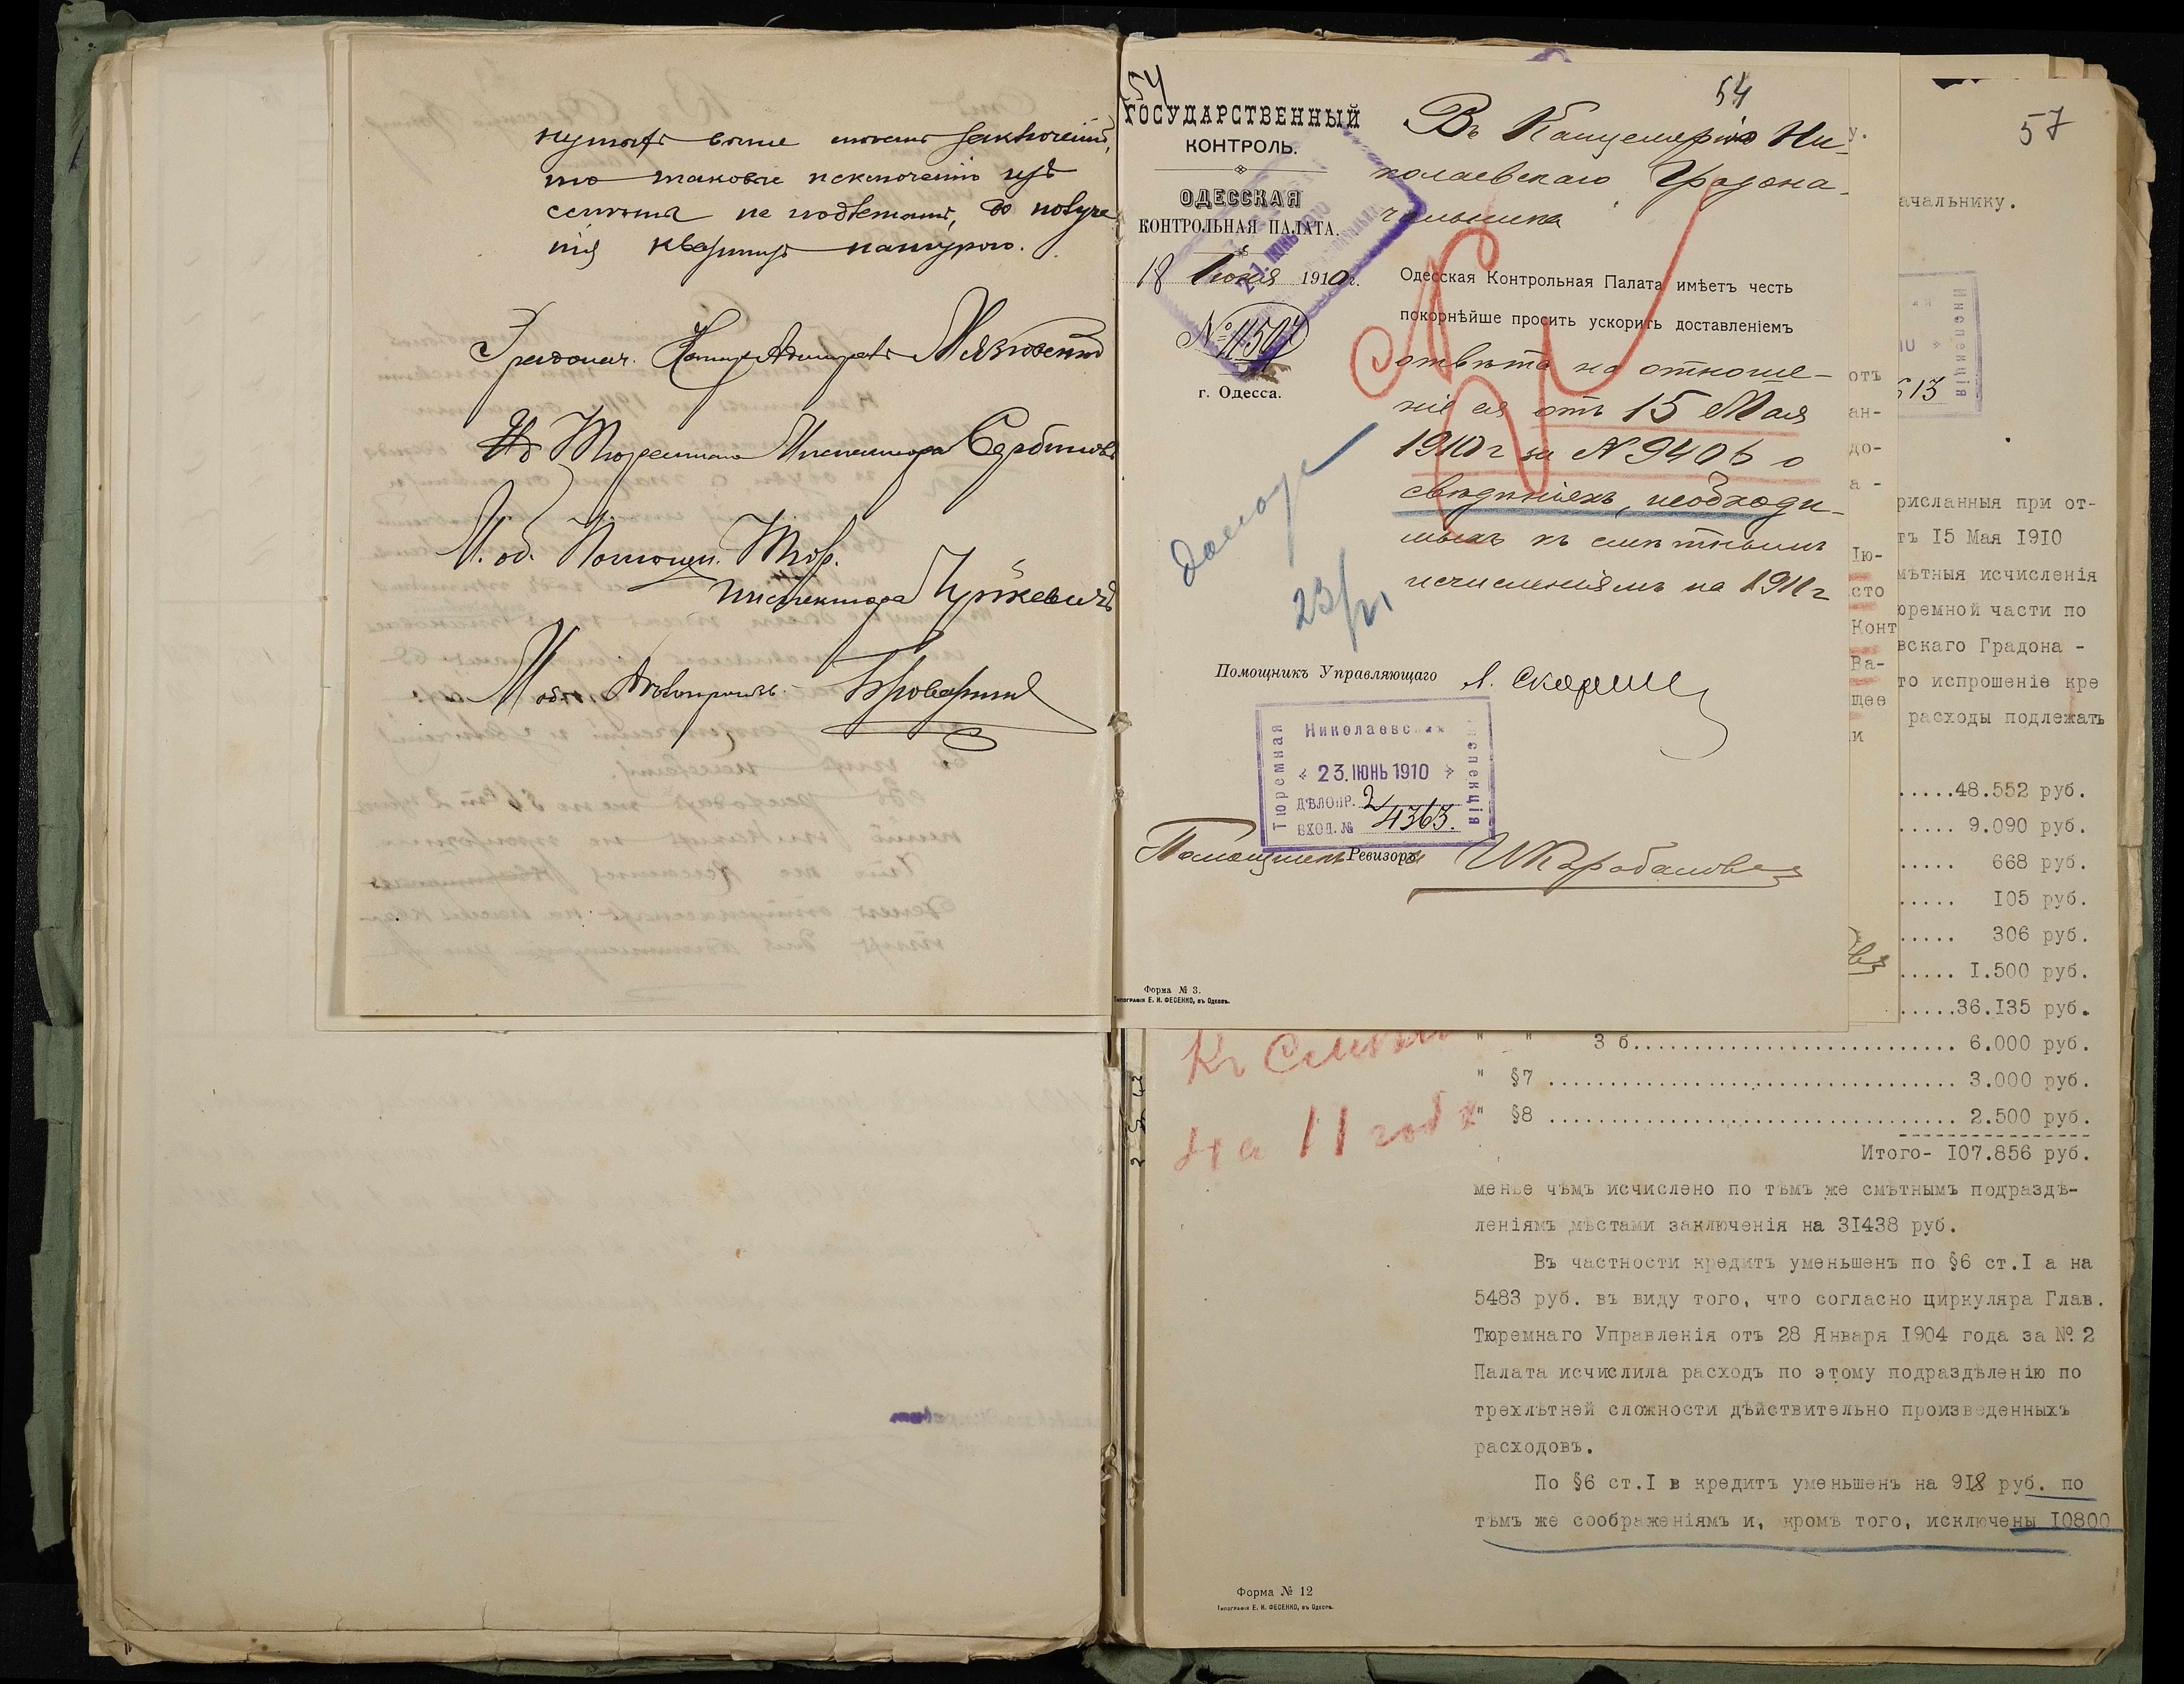 нутыхъ выше можетъ заключеній,
то таковые исключенію изъ
смѣты не подлежатъ, до получе
нія квартиръ натурою.
Градонач. Контръ Адмиралъ Мязговскій
Ив Тюремнаго Инспектора Сербиновъ
И. об. Помощн. Тюр.
Инспектора
И об. Дѣлопроизв.
54
54
ГОСУДАРСТВЕННЫЙ
КОНТРОЛЬ.
ОДЕССКАЯ
КОНТРОЛЬНАЯ ПАЛАТА.
18 Іюня 1910 г.
№ 11507
г. Одесса.
21. ІЮНЬ 1910
Въ Канцелярію Ни-
колаевскаго Градона-
чальника
Одесская Контрольная Палата имѣетъ честь
покорнѣйше просить ускорить доставленіемъ
отвѣта на отноше-
ніе ея отъ 15 Мая
1910 г за № 9406 о
свѣдѣніяхъ, необходи-
мыхъ къ смѣтнымъ
исчисленіямъ на 1911 г
доклад
23/VI
Помощникъ Управляющаго
Николаевская
Тюремная
Инспекція
« 23. ІЮНЬ 1910 »
ДѢЛОПР. 2
ВХОД. № 4363.
Помощникъ Ревизора
Форма № 3.
Типографія Е. И. ФЕСЕНКО, въ Одессѣ.
у.
отъ
ан-
до-
а -
Ію-
сто
Конт
Ва-
щее
и
57
ачальнику.
Инспекція
613
рисланныя при от-
тъ 15 Мая 1910
мѣтныя исчисленія
юремной части по
вскаго Градона -
то испрошеніе кре
расходы подлежатъ
.....48.552 руб.
..... 9.090 руб.
..... 668 руб.
..... 105 руб.
..... 306 руб.
..... 1.500 руб.
.....36.135 руб.
" " 3 б........................... 6.000 руб.
" §7 .................................. 3.000 руб.
" §8 .................................. 2.500 руб.
Итого- 107.856 руб.
Къ Смѣтѣ
на 11 годъ
менѣе чѣмъ исчислено по тѣмъ же смѣтнымъ подраздѣ-
леніямъ мѣстами заключенія на 31438 руб.
Въ частности кредитъ уменьшенъ по §6 ст.I а на
5483 руб. въ виду того, что согласно циркуляра Глав.
Тюремнаго Управленія отъ 28 Января 1904 года за № 2
Палата исчислила расходъ по этому подраздѣленію по
трехлѣтней сложности дѣйствительно произведенныхъ
расходовъ.
По §6 ст.I в кредитъ уменьшенъ на 918 руб. по
тѣмъ же соображеніямъ и, кромѣ того, исключены 10800
Форма № 12
Типографія Е. И. ФЕСЕНКО, въ Одессѣ.